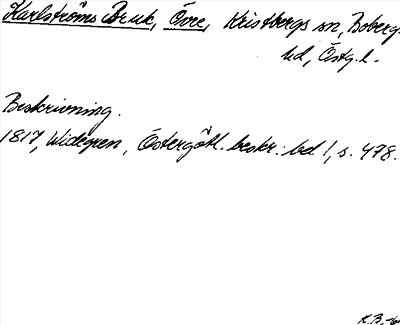 Karlströms Bruk, Övre, Kristbergs sn, Bobergs
hd, Östg.l.
Beskrivning.
1817, Widegren, Östergötl. beskr. bd 1, s. 478.